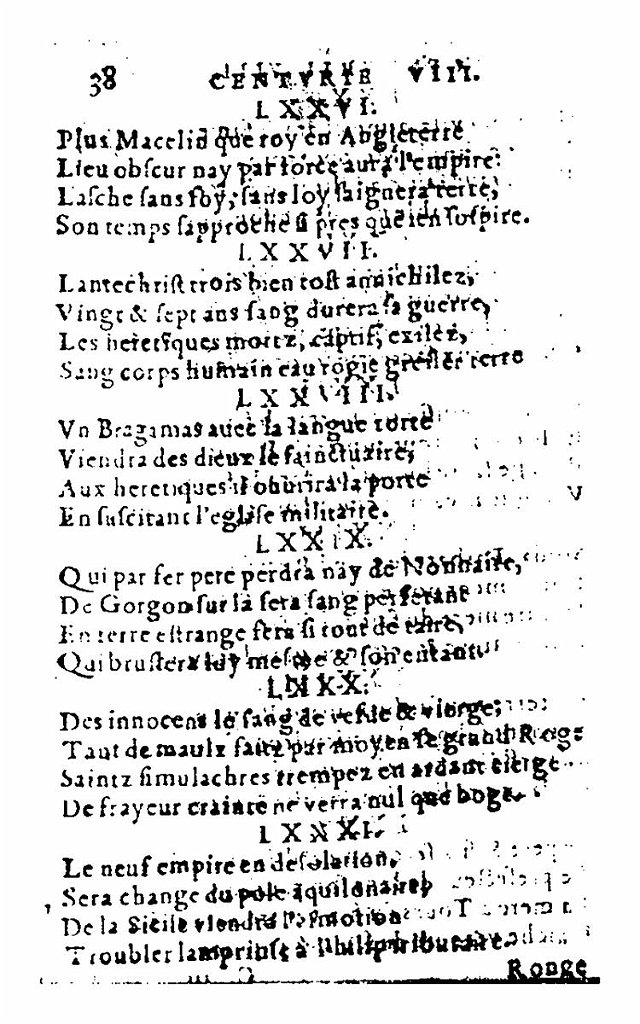 38 CENTVRIE VIII.
LXXVI.
Plus Macelin que roy en Angleterre
Lieu obſcur nay par force aura l'empire:
Laſche ſans foy, ſans loy ſaignera terre,
Son temps ſapproche ſi pres que ien ſoſpire.
LXXVII.
Lantechriſt trois bien toſt annichilez,
Vingt & ſept ans ſang durera ſa guerre,
Les heretiques mortz, captifs, exilez,
Sang corps humain eau rogie greſler terre
LXXVIII.
Vn Bragamas auec la langue torte
Viendra des dieux le ſainctuaire,
Aux heretiques il ouurira la porte
En ſuſcitant l'egliſe militaire.
LXXIX.
Qui par fer pere perdra nay de Nonnaire,
De Gorgon ſur la ſera ſang perfetant
En terre eſtrange fera ſi tout de taire,
Qui bruſlera luy meſme & ſon entant.
LXXX.
Des innocens le ſang de vefue & vierge,
Tant de maulx faitz par moyen ſe grand Roge
Saintz ſimulachres trempez en ardant cierge
De frayeur crainte ne verra nul que boge.
LXXXI.
Le neuf empire en deſolation,
Sera change du pole aquilonaire,
De la Sicile viendra l'eſmotion
Troubler lamprinſe à Philip tributaire.
Ronge